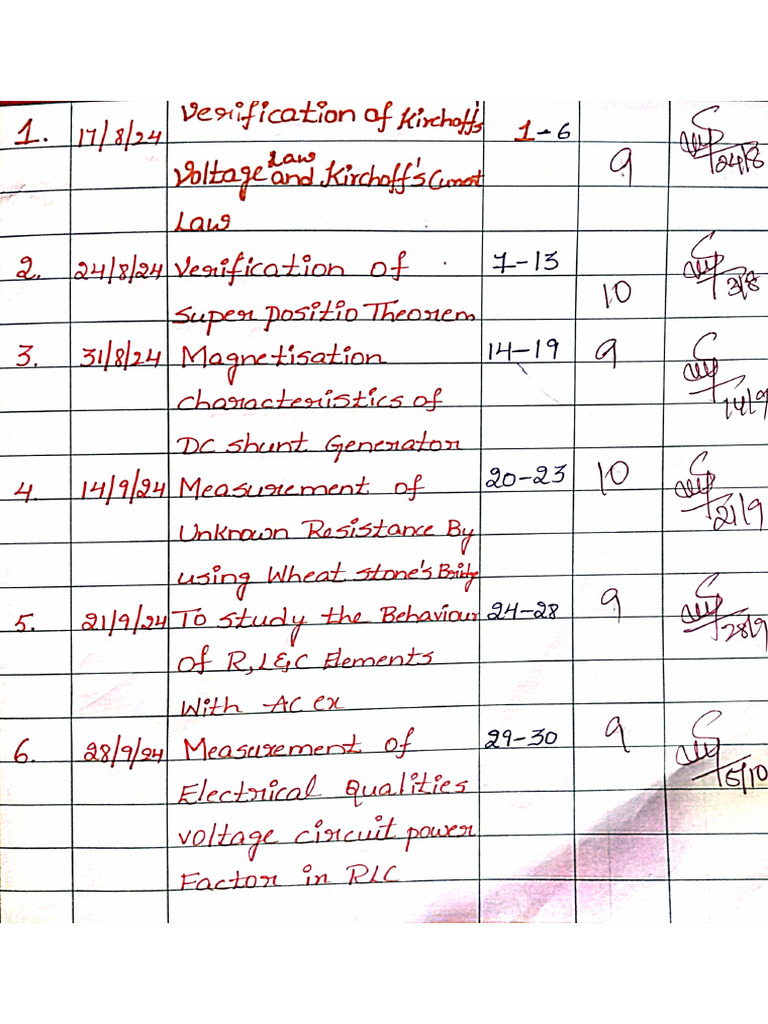 Verification of Kirchoff's
1. 17/8/24 1-6
Law
24/8
Voltage and Kirchoff's Current 9
Law
2. 24/8/24 Verification of 7-13
3/8
super positio Theorem 10
3. 31/8/24 Magnetisation 14-19 9
characteristics of
14/9
DC shunt Generator
4. 14/9/24 Measurement of 20-23 10
21/9
Unknown Resistance By
using Wheat stone's Bridge
5. 21/9/24 To study the Behaviour 24-28 9
28/9
of R, L & C Elements
With AC ex
6. 28/9/24 Measurement of 29-30 9
5/10
Electrical Qualities
voltage circuit power
Factor in RLC